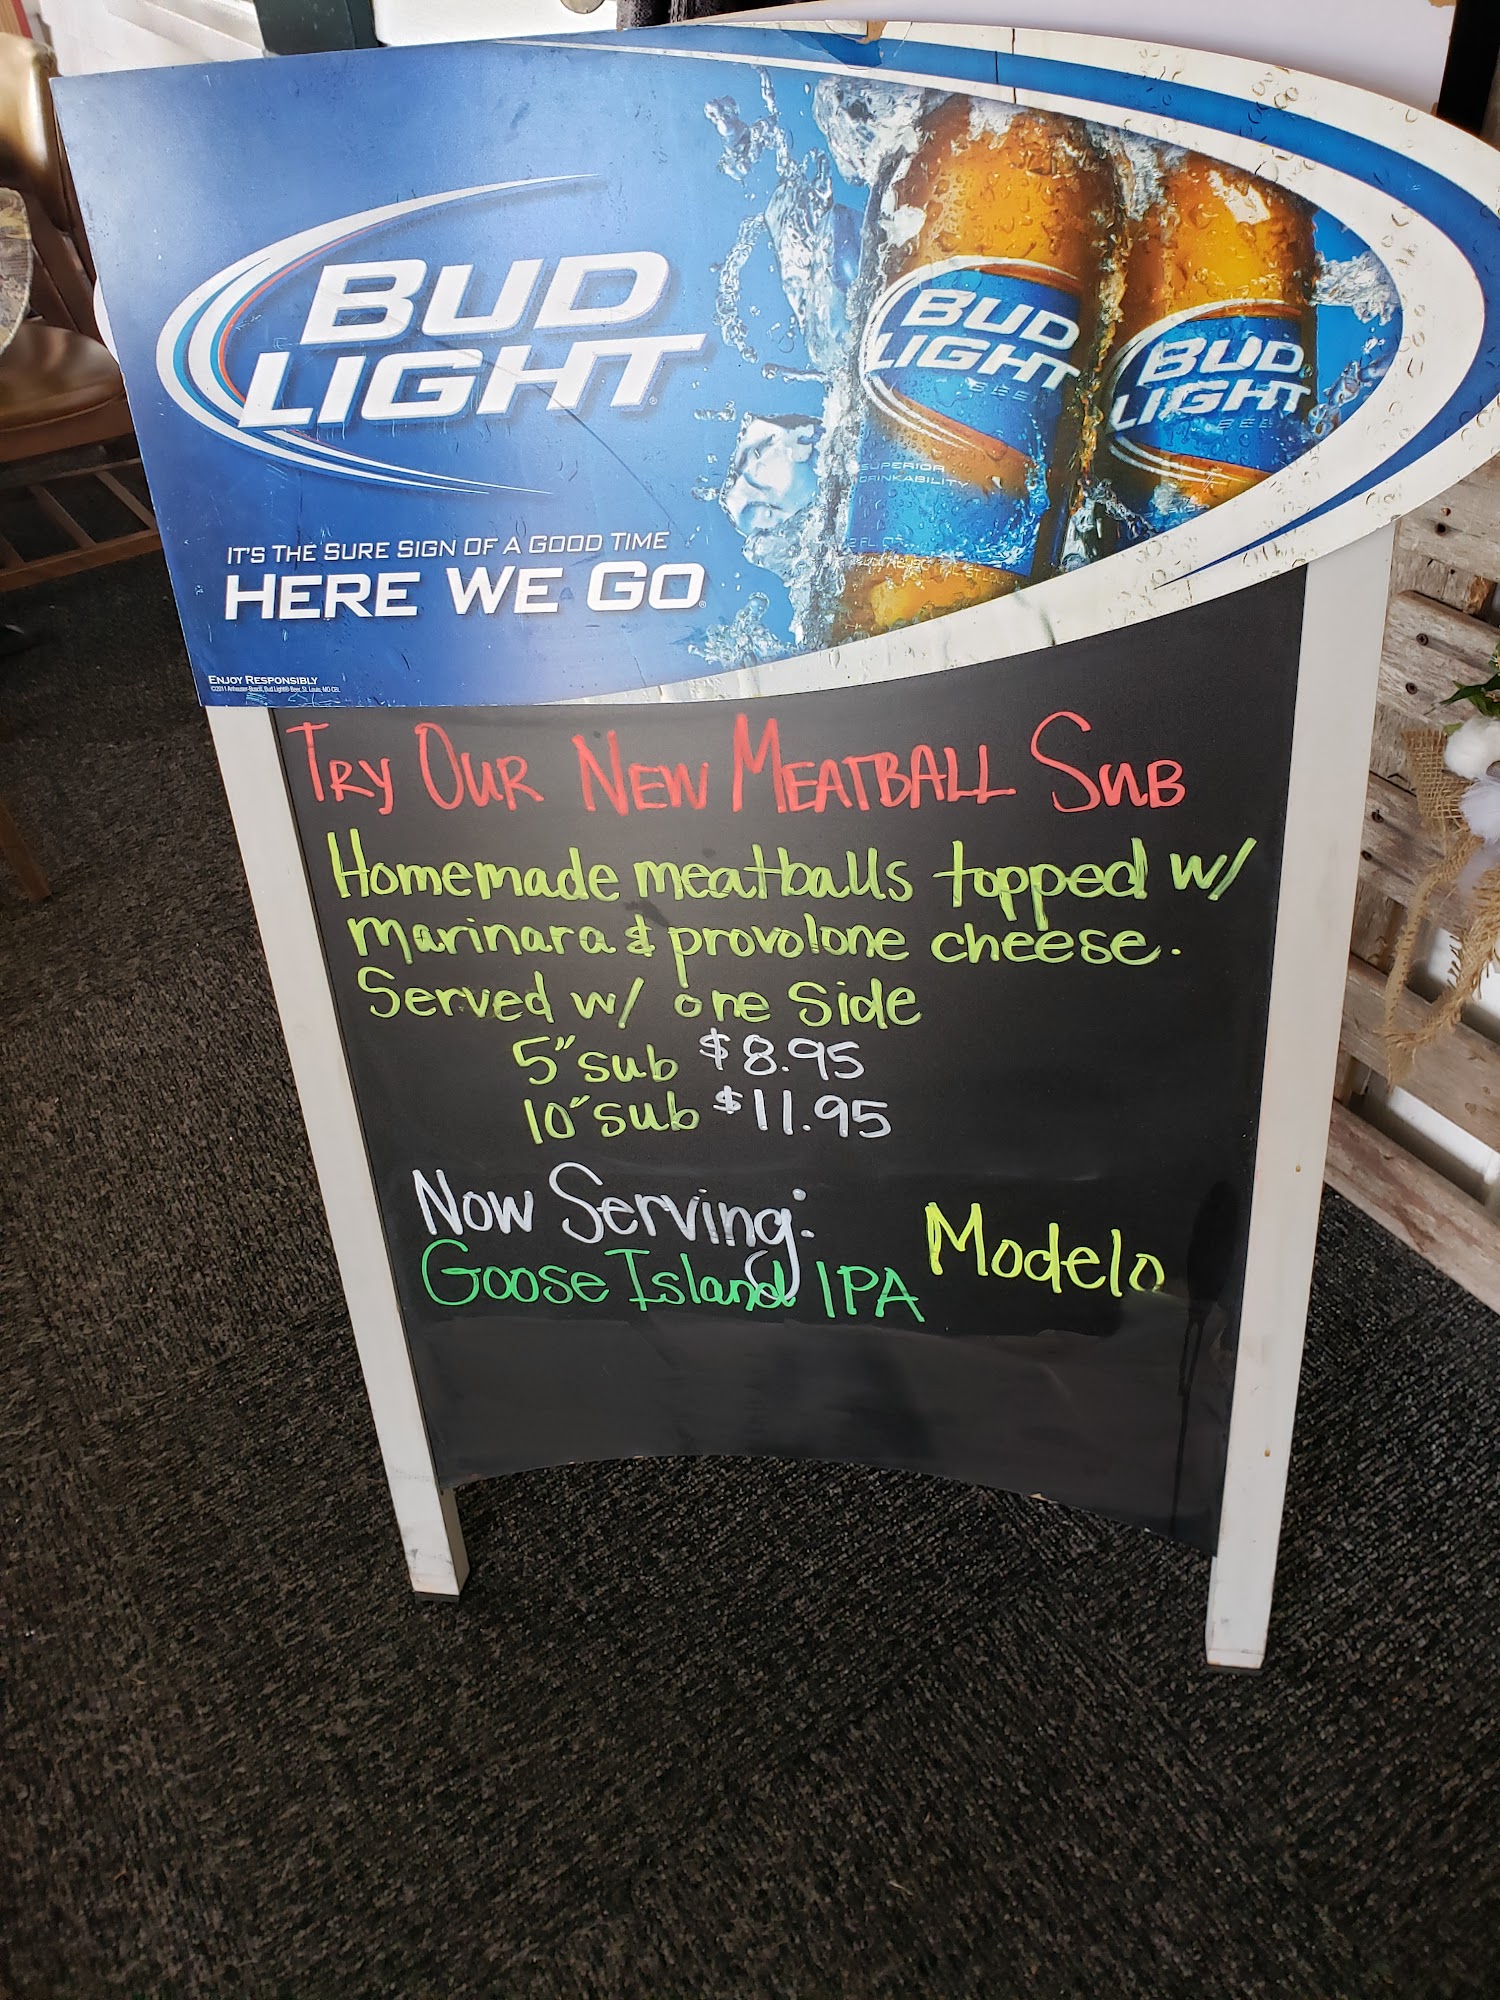 BUD
LIGHT
IT'S THE SURE SIGN OF A GOOD TIME
HERE WE GO
ENJOY RESPONSIBLY
BUD
LIGHT
BEER
SUPERIOR
DRINKABILITY
BUD
LIGHT
BEER
TRY OUR NEW MEATBALL SUB
Homemade meatballs topped w/
marinara & provolone cheese.
Served w/ one side
5" sub $8.95
10" sub $11.95
Now Serving:
Goose Island IPA
Modelo